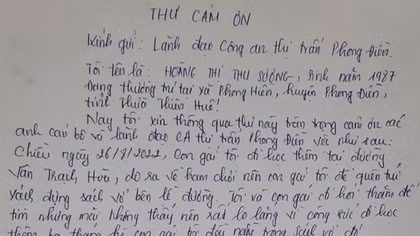 THƯ CẢM ƠN
Kính gửi: Lãnh đạo Công an thị trấn Phong Điền.
Tôi tên là: HOÀNG THỊ THU SƯƠNG, sinh năm 1987
Đang thường trú tại xã Phong Hiền, huyện Phong Điền,
tỉnh Thừa Thiên Huế!
Nay tôi xin thông qua thư này trân trọng cảm ơn các
anh cán bộ và lãnh đạo CA thị trấn Phong Điền việc như sau:
Chiều ngày 26/8/2022, con gái tôi đi học thêm tại đường
Văn Trạch Hòa, do sơ ý ham chơi nên con gái tôi để quên túi
xách đựng sách vở bên lề đường. Tôi và con gái có hỏi thăm để
tìm nhưng mãi không thấy nên rất lo lắng vì công sức đi học